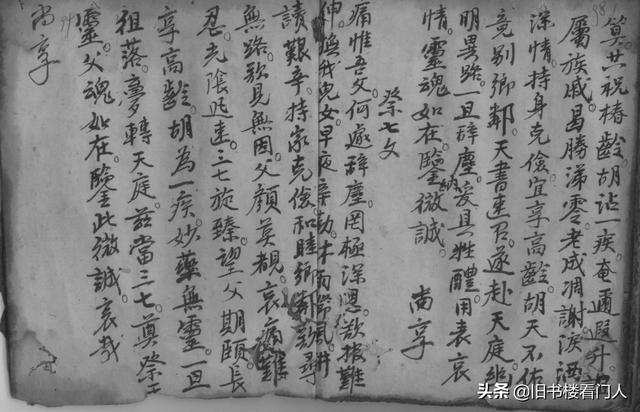 筭共祝椿齡胡沾一疾奄遐升
屬族戚曷勝涕零老成凋謝淚洒
深情持身克儉宜享高齡胡天不佑
竟别鄉鄰天書速召遂赴天庭幽
明異路一旦辞塵爰具牲醴用表哀
情靈魂如在鑒納微誠 尚享
祭七文
痛惟吾父何遽辞塵罔極深恩欲报難
伸撫我兒女早夜辛勤木雨櫛風
艱辛持家克儉和睦鄉鄰尋
無路欲見無因父顔莫覩哀痛難
忍光陰迅速三七旋臻望父期頤長
享高齡胡為一疾妙藥無靈一旦
祖落夢轉天庭茲當三七奠祭
靈父魂如在鑒此微誠哀哉
尚享
头条 @旧书楼看门人